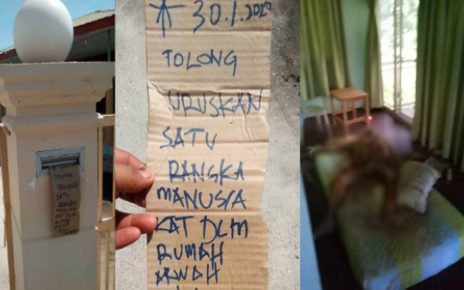 30.1.202
TOLONG
URUSKAN
SATU
RANGKA
MANUSIA
KAT DLM
RUMAH
ARWAH